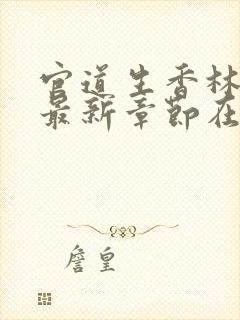 官道生香林
最新章节在
詹皇